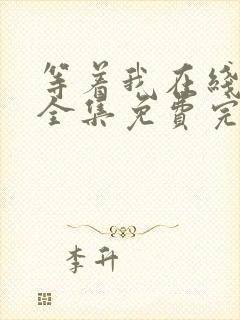 等着我在线
全集免费完
李升